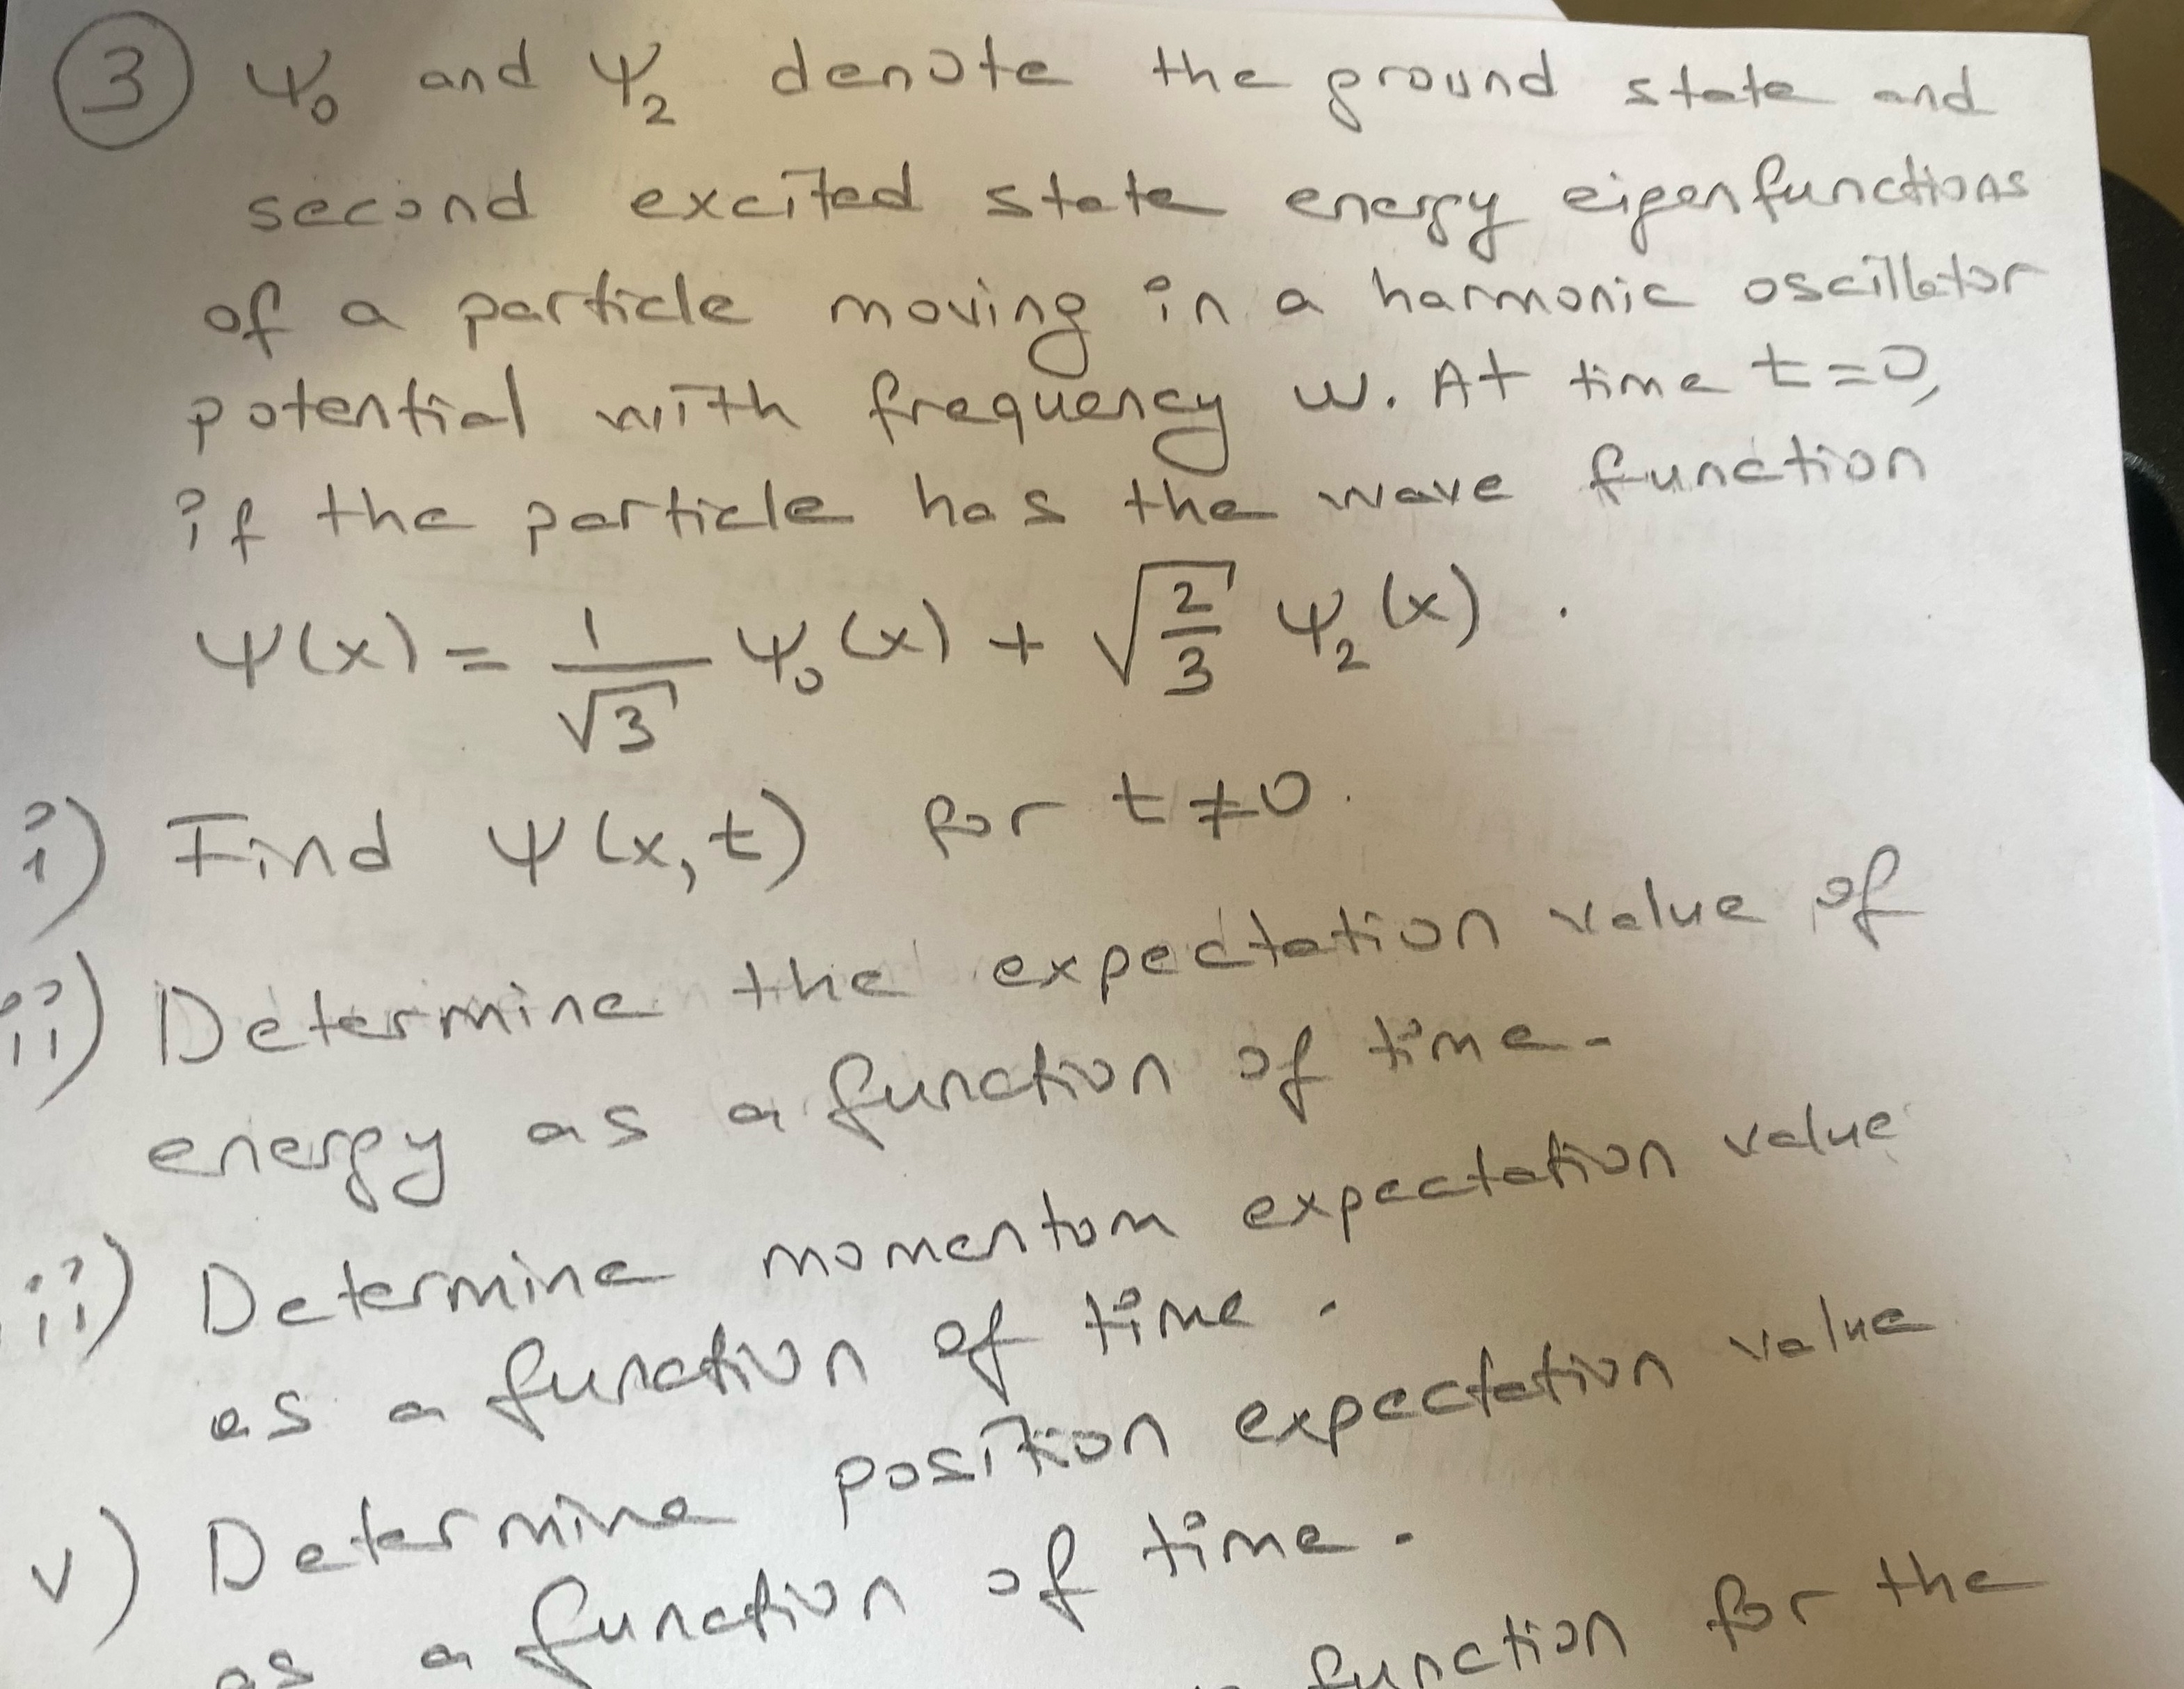 3 ψ₀ and ψ₂ denote the ground state and
second excited state energy eigenfunctions
of a particle moving in a harmonic oscillator
potential with frequency w. At time t=0,
if the particle has the wave function
ψ(x) = 1/√3 ψ₀(x) + √(2/3) ψ₂(x).
i) Find ψ(x,t) for t≠0.
ii) Determine the expectation value of
energy as a function of time.
ii) Determine momentum expectation value
as a function of time.
v) Determine position expectation value
as a function of time.
function for the